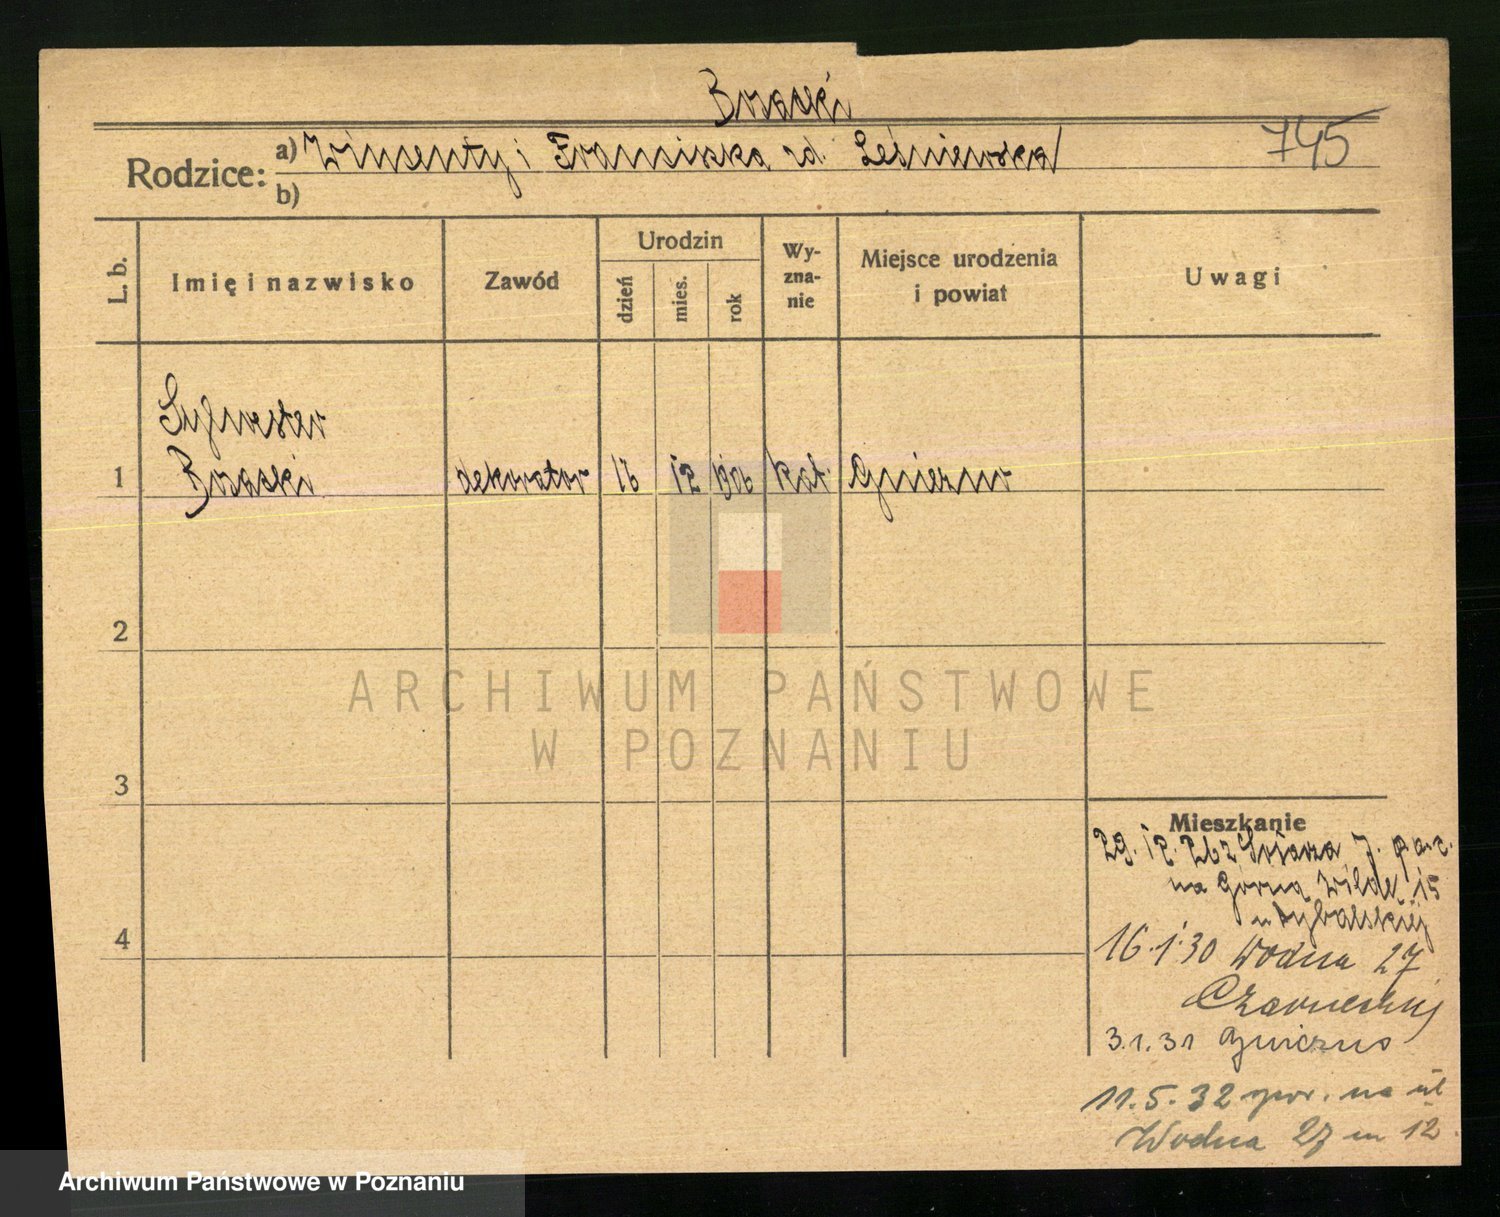 Brzaski
745
Rodzice:
a) Wincenty i Franciszka zd. Leśniewska
b)
L. b.
Imię i nazwisko
Zawód
Urodzin
dzień
mies.
rok
Wy-
zna-
nie
Miejsce urodzenia
i powiat
Uwagi
Sylwester
1 Brzaski dekorator 16 12 1906 kat. Gniezno
2
ARCHIWUM PAŃSTWOWE
W POZNANIU
3
Mieszkanie
29. 12. 26 z
na Górną Wildę 15
u Rybalskiej
4
16.1.30 Wodna 27
3.1.31 Gniezno
11.5.32 pow. na ul
Wodna 27 m 12
Archiwum Państwowe w Poznaniu